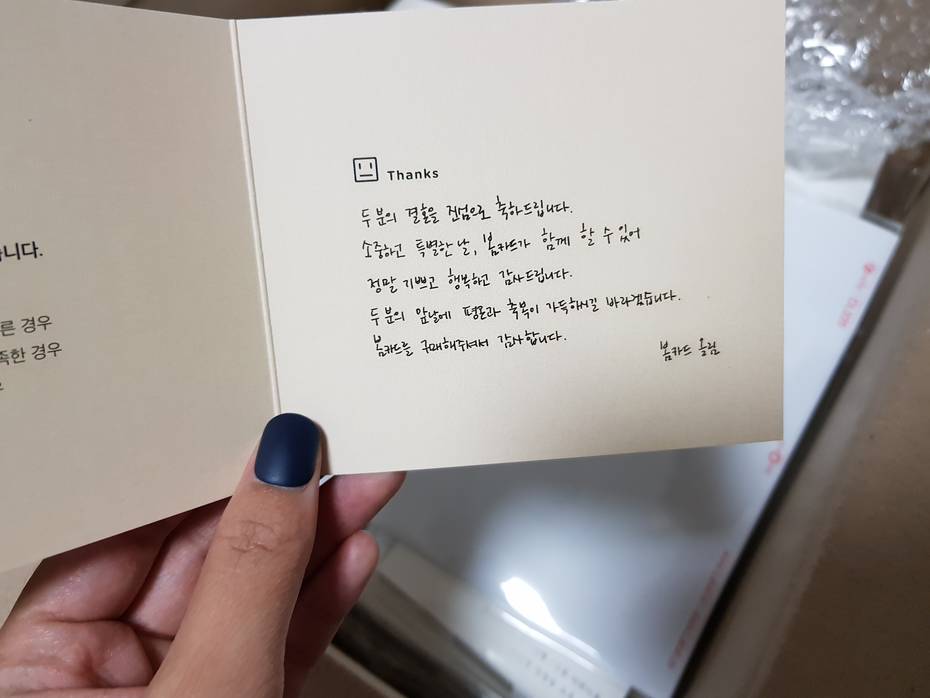 니다.
른 경우
족한 경우
Thanks
두 분의 결혼을 진심으로 축하드립니다.
소중하고 특별한 날, 봄카드가 함께 할 수 있어
정말 기쁘고 행복하고 감사드립니다.
두 분의 앞날에 평온과 축복이 가득하시길 바라겠습니다.
봄카드를 구매해주셔서 감사합니다.
봄카드 올림